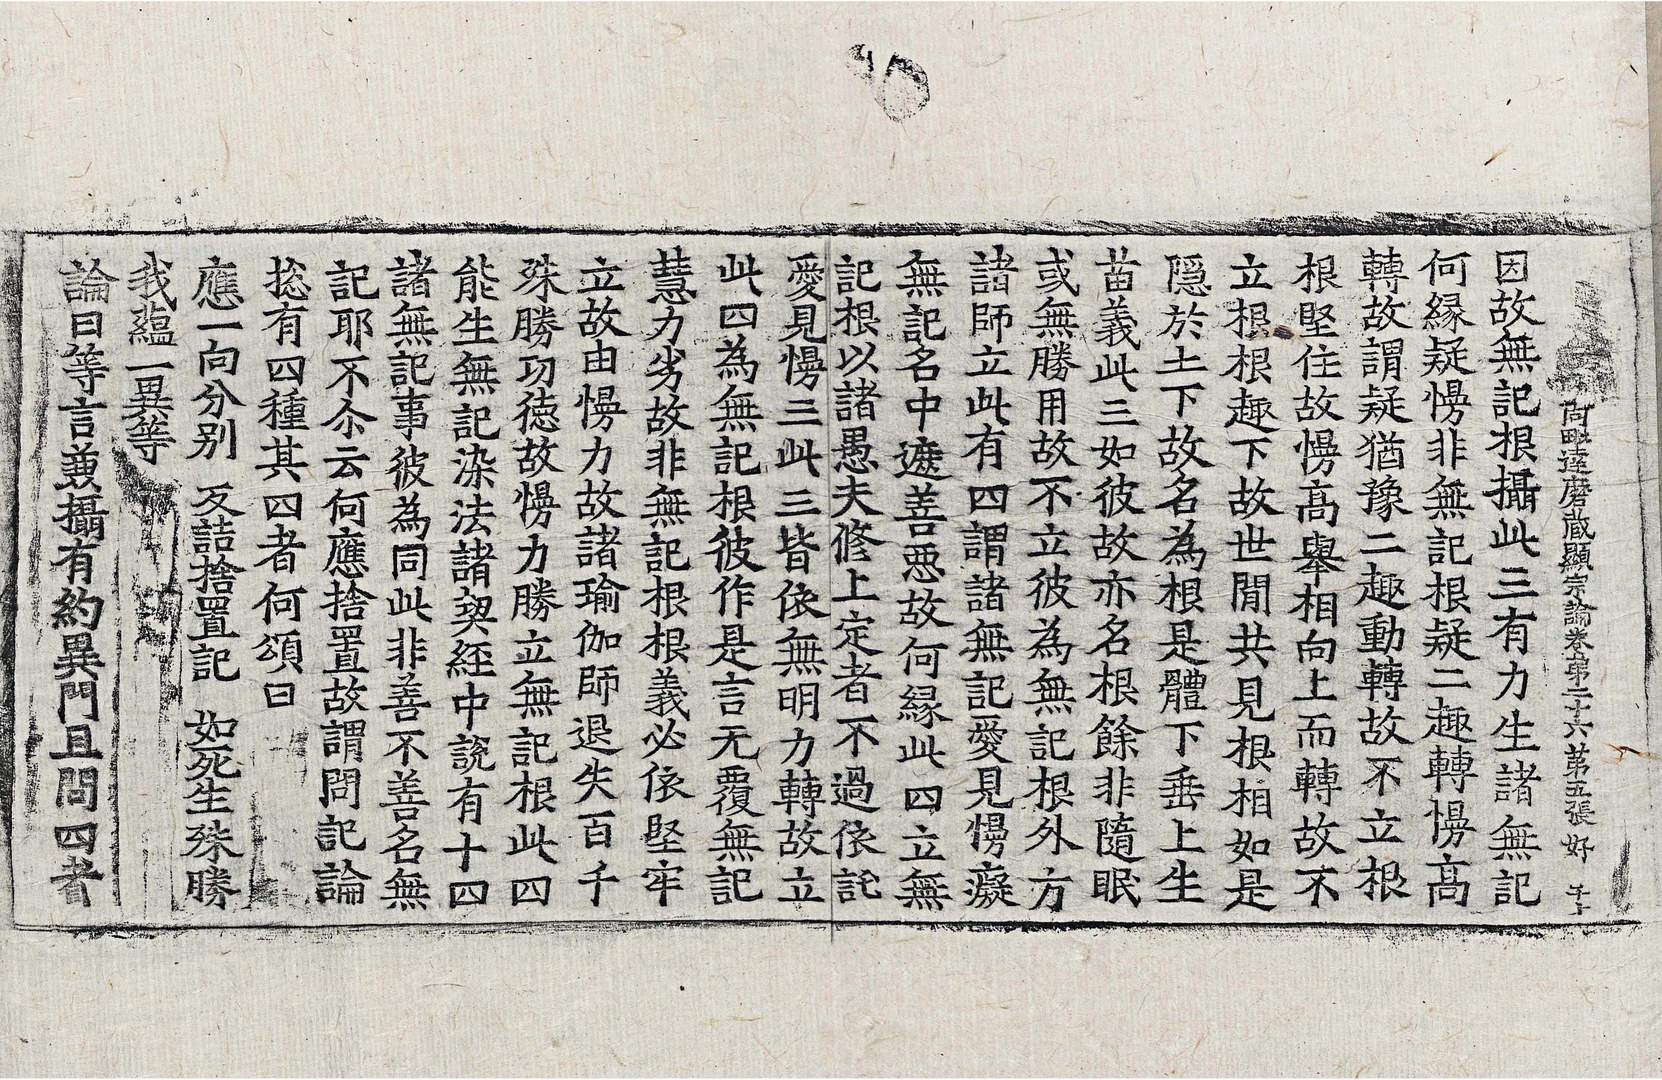 阿毗達磨藏顯宗論卷第二十六 第五張 好
因故無記根攝此三有力生諸無記
何縁疑慢非無記根疑二趣轉慢高
轉故謂疑猶豫二趣動轉故不立根
根堅住故慢高舉相向上而轉故不
立根根趣下故世間共見根相如是
隱於土下故名為根是體下垂上生
苗義此三如彼故亦名根餘非隨眠
或無勝用故不立彼為無記根外方
諸師立此有四謂諸無記愛見慢癡
無記名中遮善惡故何縁此四立無
記根以諸愚夫修上定者不過依託
愛見慢三此三皆依無明力轉故立
此四為無記根彼作是言无覆無記
慧力劣故非無記根根義必依堅牢
立故由慢力故諸瑜伽師退失百千
殊勝功徳故慢力勝立無記根此四
能生無記染法諸契經中說有十四
諸無記事彼為同此非善不善名無
記耶不尒云何應捨置故謂問記論
捴有四種其四者何頌曰
應一向分别　反詰捨置記　如死生殊勝
我蘊一異等
論曰等言兼攝有約異門且問四者